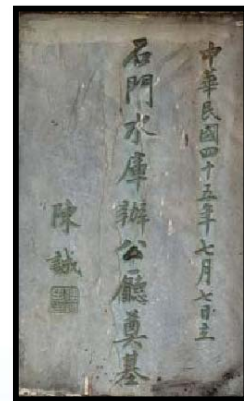 中華民國四十五年七月七日立
石門水庫辦公廳奠基
陳誠